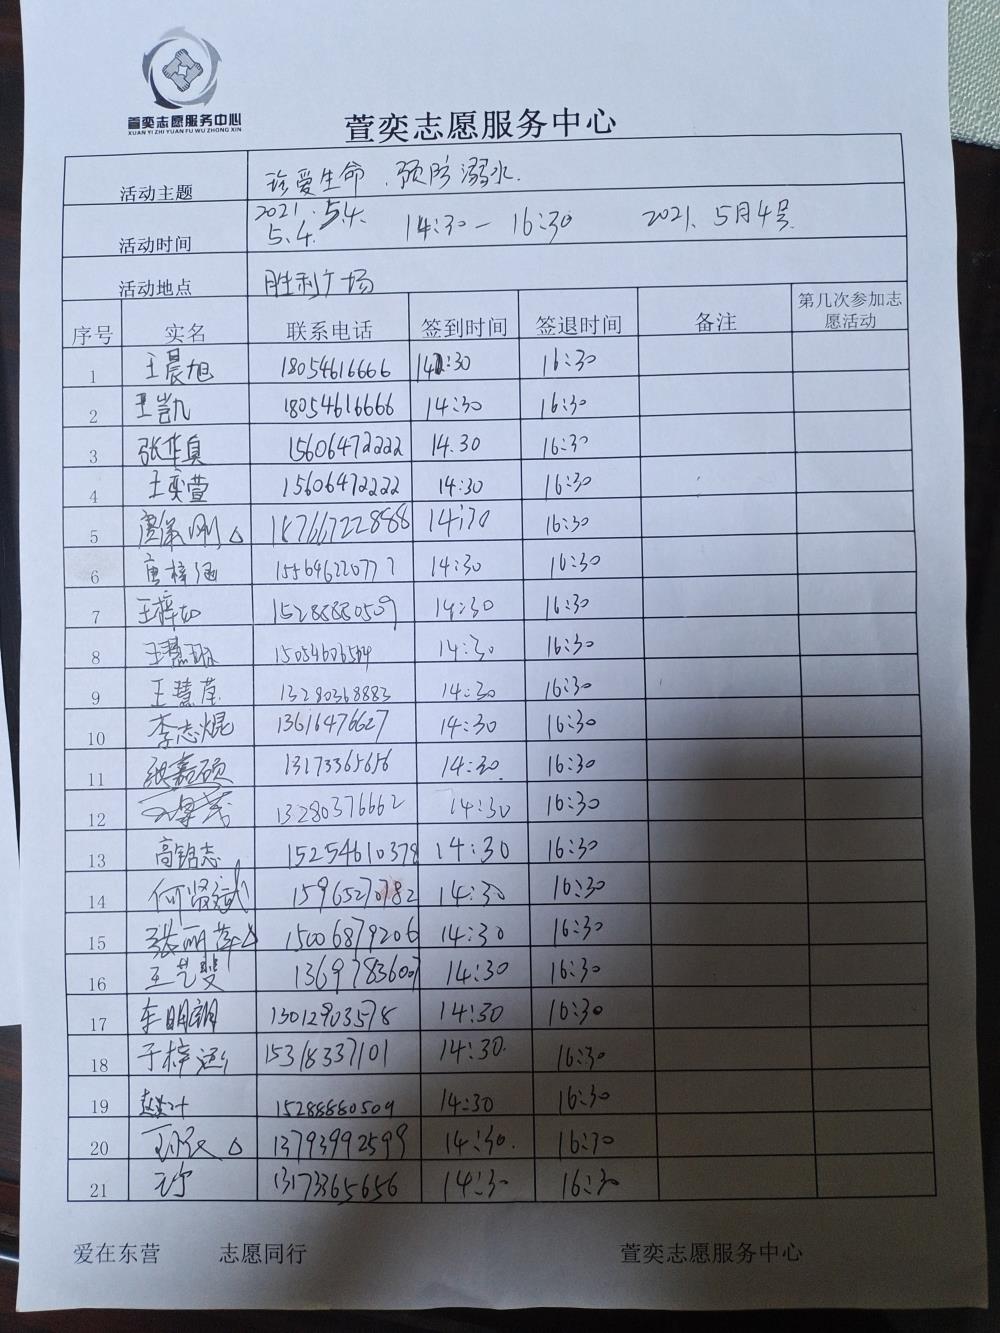 萱奕志愿服务中心
XUAN YI ZHI YUAN FU WU ZHONG XIN
萱奕志愿服务中心
活动主题 珍爱生命、预防溺水.
活动时间 2021.5.4. 5.4. 14:30-16:30 2021.5月4号
活动地点 胜利广场
序号 实名 联系电话 签到时间 签退时间 备注 第几次参加志愿活动
1 王晨旭 18054616666 14:30 16:30
2 王凯 18054616666 14:30 16:30
3 张华贞 15606472222 14.30 16:30
4 王奕萱 15606472222 14:30 16:30
5 唐 刚 △ 15766722888 14:30 16:30
6 唐梓涵 15564622077 14:30 16:30
7 王梓如 15288880509 14:30 16:30
8 王慧 14:30 16:30
9 王慧莹 13280368883 14:30 16:30
10 李志焜 13616476627 14:30 16:30
11 张嘉硕 13173365656 14:30 16:30
12 13280376662 14:30 16:30
13 高铭志 15254610378 14:30 16:30
14 何贤斌 15965270782 14:30 16:30
15 张丽萍 △ 15006879206 14:30 16:30
16 王艺斐 13697836007 14:30 16:30
17 车明翰 13012903578 14:30 16:30
18 于梓 15318337101 14:30 16:30
19 赵 15288880509 14:30 16:30
20 △ 13793992599 14:30 16:30
21 王宁 13173365656 14:30 16:30
爱在东营 志愿同行 萱奕志愿服务中心